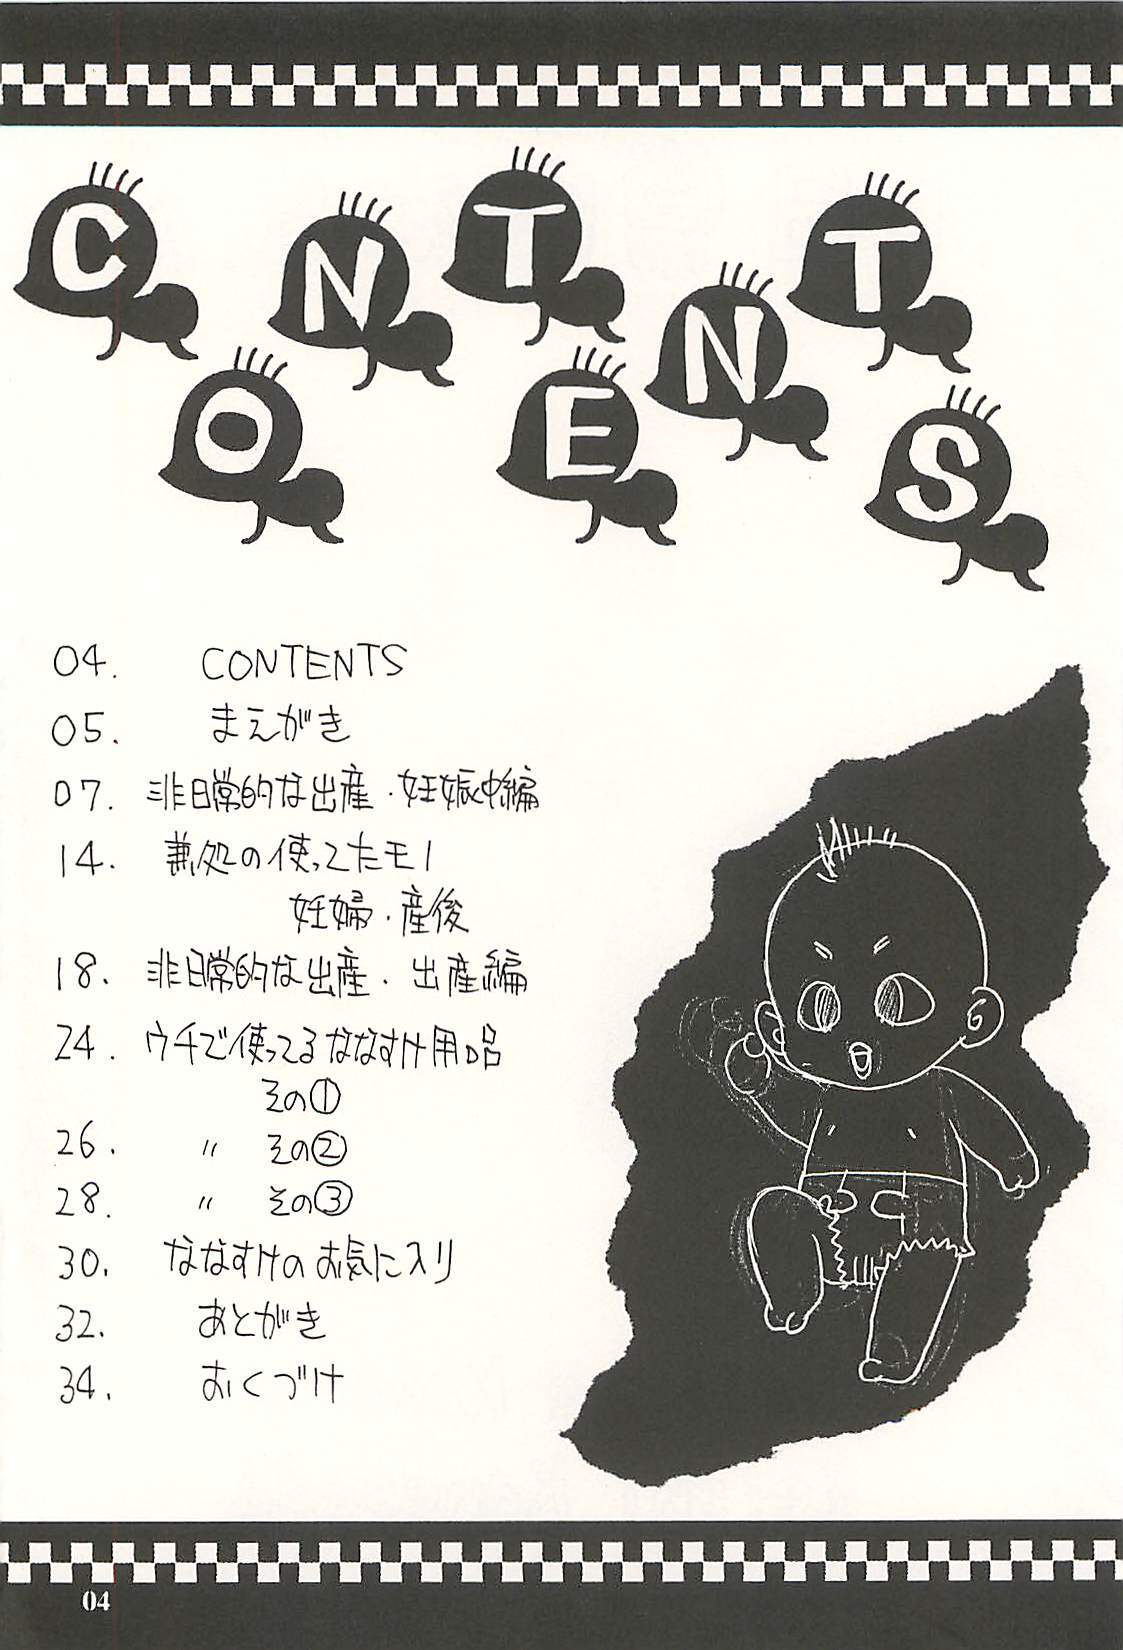 CONTENTS
04. CONTENTS
05. まえがき
07. 非日常的な出産・妊娠中編
14. 兼処の使ってたモノ
妊婦・産後
18. 非日常的な出産・出産編
24. ウチで使ってるななすけ用品
その①
26. 〃 その②
28. 〃 その③
30. ななすけのお気に入り
32. あとがき
34. おくづけ
04